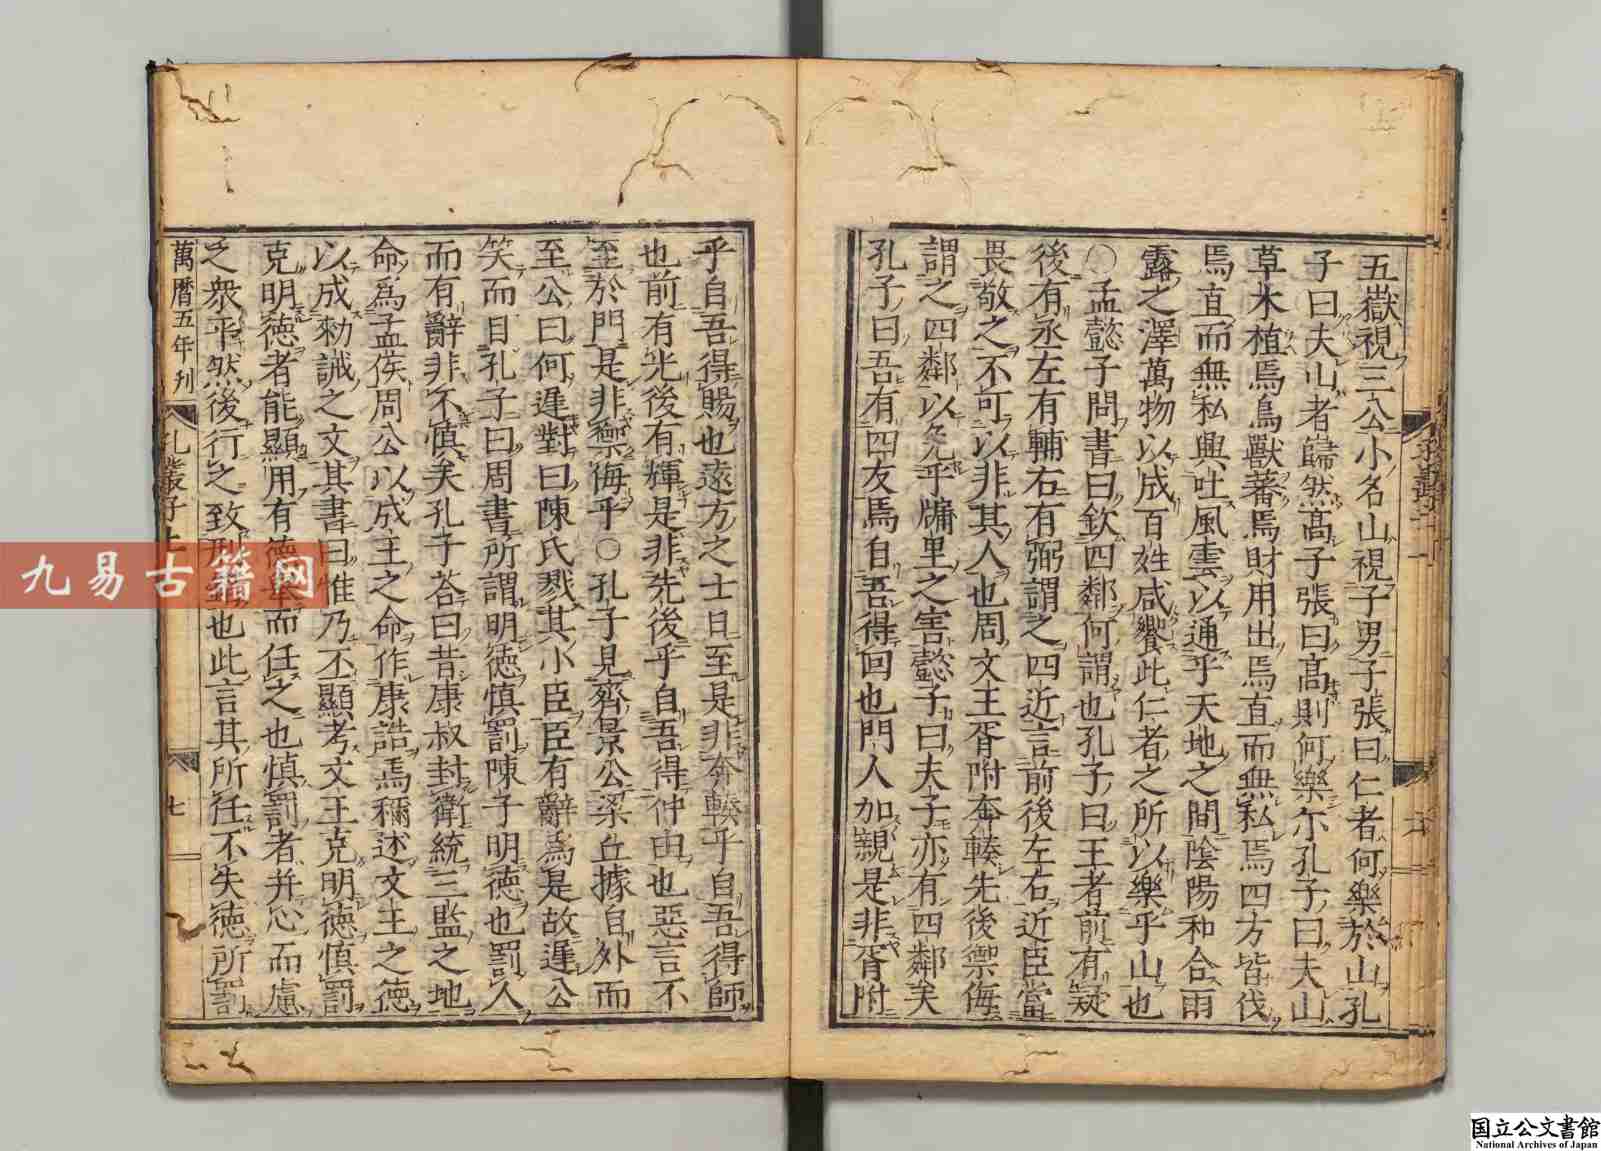 五嶽視三公小名山視子男子張曰仁者何樂於山孔
子曰夫山者巋然高子張曰高則何樂尔孔子曰夫山
草木植焉鳥獸蕃焉財用出焉直而無私焉四方皆伐
焉直而無私興吐風雲以通乎天地之間陰陽和合雨
露之澤萬物以成百姓咸饗此仁者之所以樂乎山也
○孟懿子問書曰欽四鄰何謂也孔子曰王者前有疑
後有丞左有輔右有弼謂之四近言前後左右近臣當
畏敬之不可以非其人也周文王胥附奔輳先後禦侮
謂之四鄰以免乎牖里之害懿子曰夫子亦有四鄰矣
孔子曰吾有四友焉自吾得回也門人加親是非胥附
乎自吾得賜也遠方之士日至是非奔輳乎自吾得師
也前有光後有輝是非先後乎自吾得仲由也惡言不
至於門是非禦侮乎○孔子見齊景公梁丘據自外而
至公曰何遲對曰陳氏戮其小臣臣有辭為是故遲公
笑而目孔子曰周書所謂明德慎罰陳子明德也罰人
而有辭非不慎矣孔子荅曰昔康叔封衛統三監之地
命為孟侯周公以成王之命作康誥焉稱述文王之德
以成勑誡之文其書曰惟乃丕顯考文王克明德慎罰
克明德者能顯用有德舉而任之也慎罰者并心而慮
之衆平然後行之致刑錯也此言其所任不失德所罰
萬曆五年刊
孔叢子上
七
九易古籍网
国立公文書館
National Archives of Japan